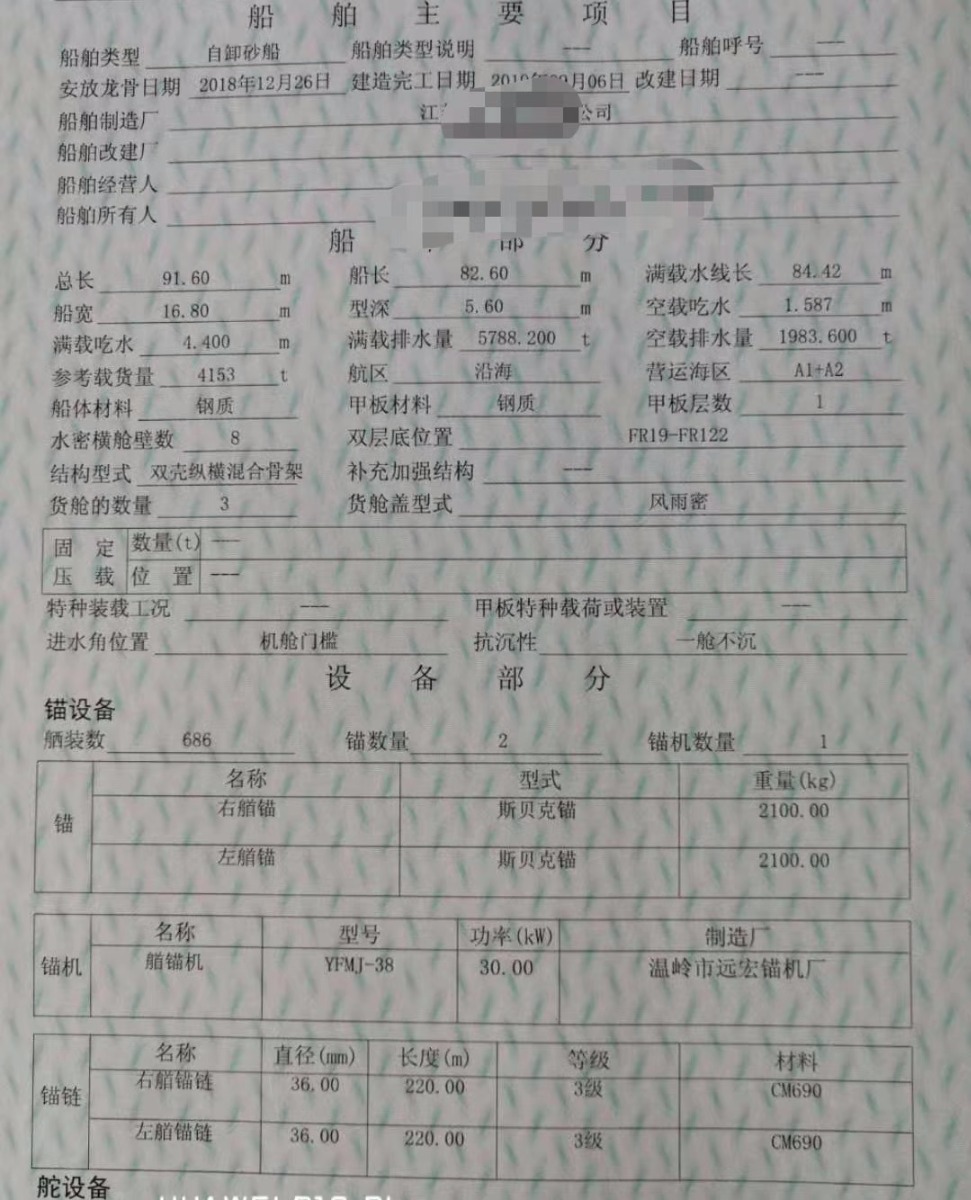 船舶主要项目
船舶类型 自卸砂船 船舶类型说明 --- 船舶呼号 ---
安放龙骨日期 2018年12月26日 建造完工日期 月06日 改建日期 ---
船舶制造厂 江 公司
船舶改建厂
船舶经营人
船舶所有人
船 部分
总长 91.60 m 船长 82.60 m 满载水线长 84.42 m
船宽 16.80 m 型深 5.60 m 空载吃水 1.587 m
满载吃水 4.400 m 满载排水量 5788.200 t 空载排水量 1983.600 t
参考载货量 4153 t 航区 沿海 营运海区 A1+A2
船体材料 钢质 甲板材料 钢质 甲板层数 1
水密横舱壁数 8 双层底位置 FR19-FR122
结构型式 双壳纵横混合骨架 补充加强结构 ---
货舱的数量 3 货舱盖型式 风雨密
固定 数量(t) ---
压载 位置 ---
特种装载工况 --- 甲板特种载荷或装置 ---
进水角位置 机舱门槛 抗沉性 一舱不沉
设备部分
锚设备
舾装数 686 锚数量 2 锚机数量 1
锚 名称 型式 重量(kg)
右艏锚 斯贝克锚 2100.00
左艏锚 斯贝克锚 2100.00
锚机 名称 型号 功率(kW) 制造厂
艏锚机 YFMJ-38 30.00 温岭市远宏锚机厂
锚链 名称 直径(mm) 长度(m) 等级 材料
右艏锚链 36.00 220.00 3级 CM690
左艏锚链 36.00 220.00 3级 CM690
舵设备